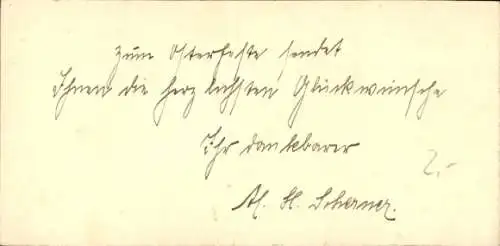 zum Osterfeste sendet
Ihnen die herzlichsten Glückwünsche
Ihr dankbarer
2.-
H. Scherner.